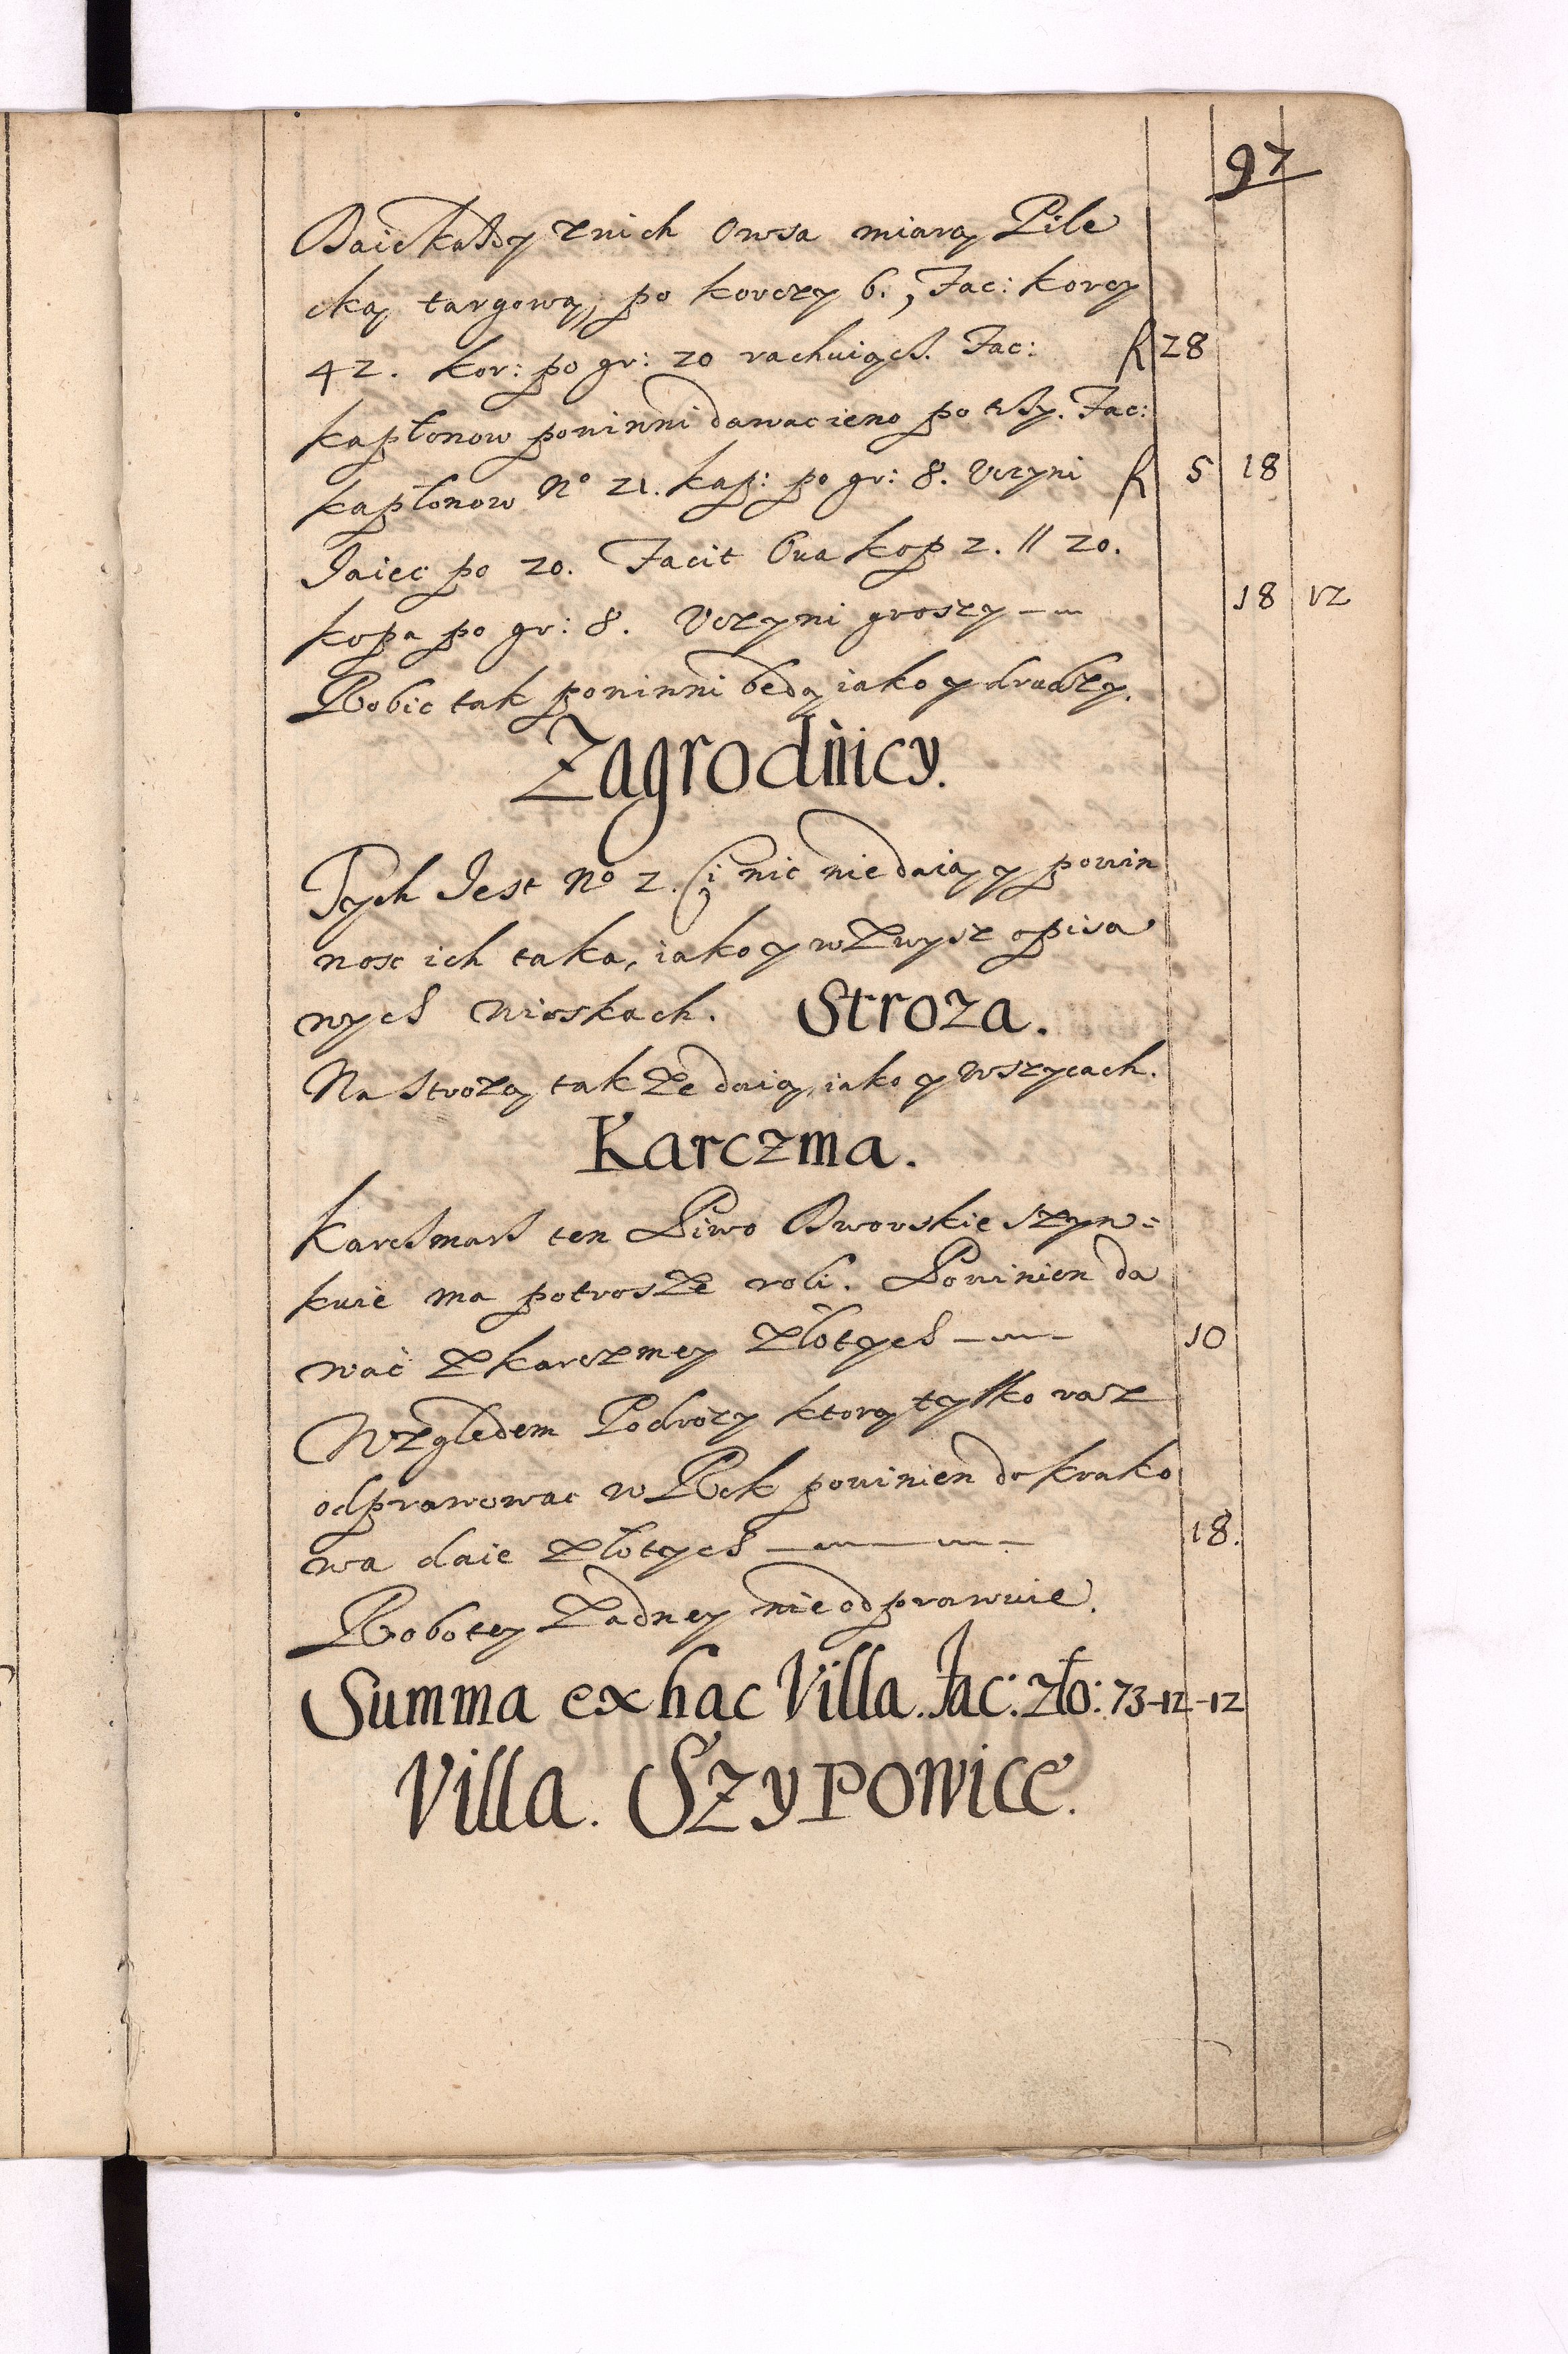 97
Daie każdy z nich Owsa miarą Pile
cką targową, po korczy 6., Fac: korcy
42. kor: po gr: 20 rachuiącz. Fac: f 28
kapłonow powinni dawac ieno po trzy. Fac:
kapłonow No 21. kap: po gr: 8. Vczyni f 5 18
Jaiec po 20. Facit Oua kop 2. // 20.
kopa po gr: 8. Vczyni groszy 18 12
Robic tak powinni będą iako y drudzy.
Zagrodnicy.
Tych Jest No 2. Ci nic nie daią y powin
nosc ich taka, iako y w zwysz opisa
nych wioskach. Stroza.
Na Strozą takze daią, iako y wszycach.
Karczma.
Karczmarz ten Piwo Dworskie szyn=
kuie ma potrosze roli. Powinien da
wać z karczmey złotych 10
Względem Podrozy ktorą tylko raz
odprawowac w Rok powinien do krako
wa daie złotych 18.
Robotey zadney nie odprawuie.
Summa ex hac Villa. Fac: zło: 73-12-12
Villa. Szypowice.